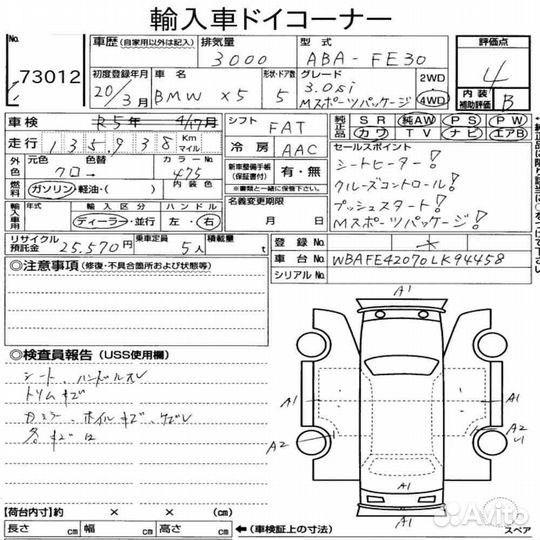 輸入車ドイコーナー
No. 73012
車歴 (自家用以外は記入) 排気量 3000 型式 ABA-FE30 評価点 4
初度登録年月 20/3月 車名 BMW X5 形状・ドア数 5 グレード 3.0si Mスポーツパッケージ 2WD 4WD 内装補助評価 B
車検 R5年 4/17月 シフト FAT 純正品 SR 純AW PS PW
走行 135,938 Km マイル 冷房 AAC カワ TV ナビ エアB
外色 元色 クロ 色替 → カラーNo. 475 新車整備手帳(保証書含む) 有・無 セールスポイント
シートヒーター!
燃料 ガソリン・軽油・( ) 内装色 クルーズコントロール!
輸入車用 年式 輸入区分 ディーラー・並行 ハンドル 左・右 名義変更期限 月 日 プッシュスタート!
Mスポーツパッケージ!
リサイクル預託金 25,570円 乗車定員 5人 積載量 t 登録No.
車台No. WBAFE42070LK94458
シリアルNo.
◎注意事項 (修復・不具合箇所および状態等)
A1
◎検査員報告 (USS使用欄)
シート、ハンドルスレ
トリムキズ
ホイルキズ
A1 A1
A2 A2
A1
【荷台内寸】約 × × (cm)
長さ cm 幅 cm 高さ cm ←(車検証上の寸法) スペア
Avito